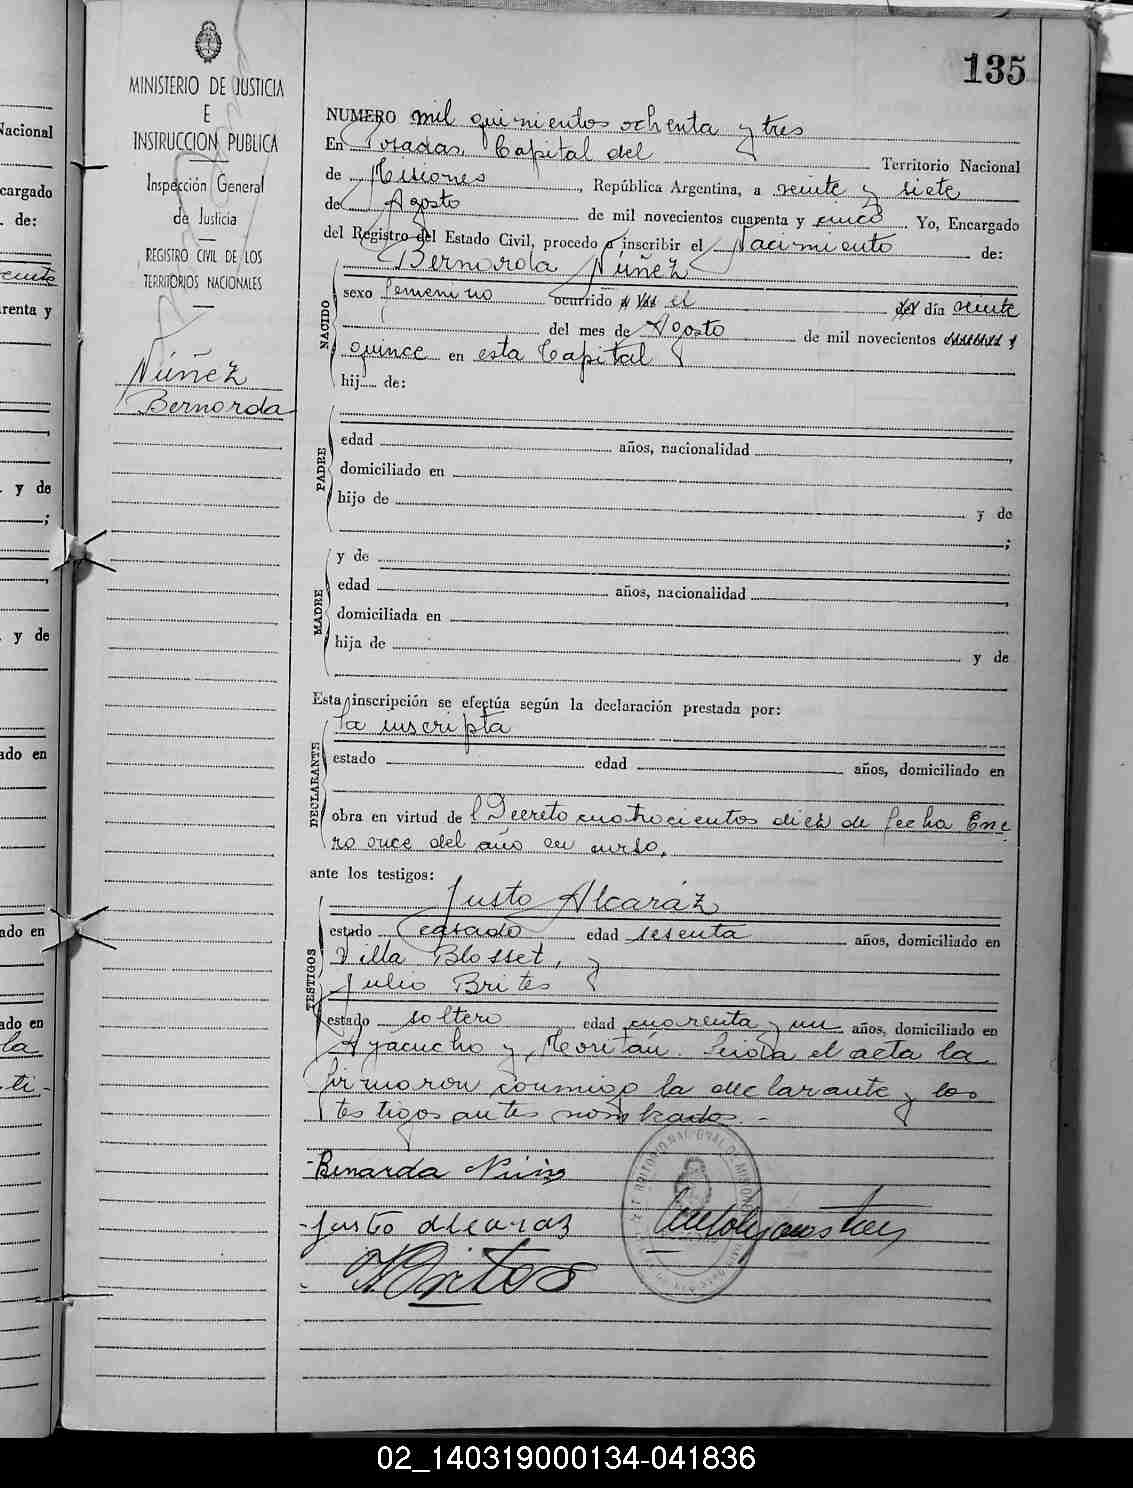 135
MINISTERIO DE JUSTICIA
E
INSTRUCCION PUBLICA
Inspección General
de Justicia
REGISTRO CIVIL DE LOS
TERRITORIOS NACIONALES
Núñez
Bernarda
NUMERO mil quinientos ochenta y tres
En Posadas, Capital del Territorio Nacional
de Misiones, República Argentina, a veinte y siete
de Agosto de mil novecientos cuarenta y cinco Yo, Encargado
del Registro del Estado Civil, procedo a inscribir el Nacimiento de:
Bernarda Núñez
NACIDO
sexo femenino ocurrido el día veinte
del mes de Agosto de mil novecientos
quince en esta Capital
hij..... de:
PADRE
edad años, nacionalidad ,
domiciliado en
hijo de y de
;
MADRE
y de
edad años, nacionalidad ,
domiciliada en
hija de y de
Esta inscripción se efectúa según la declaración prestada por:
DECLARANTE
la inscripta
estado edad años, domiciliado en
obra en virtud de l Decreto cuatrocientos diez de fecha Ene
ro once del año en curso.
ante los testigos:
TESTIGOS
Justo Alcaráz
estado casado edad sesenta años, domiciliado en
Villa Blosset, y
Julio Brites
estado soltero edad cuarenta y un años, domiciliado en
Ayacucho y Moritán. Leida el acta la
firmaron conmigo la declarante y los
testigos antes nombrados.-
Benarda
Justo alcaraz
Nacional
cargado
. de:
renta y
. y de
;
. y de
ado en
ado en
ado en
la
ti-
02_140319000134-041836